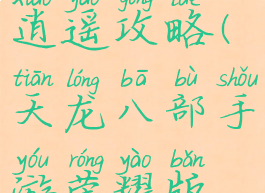 xiāo yáo gōng lüè
逍遥攻略(
tiān lóng bā bù shǒu
天龙八部手
yóu róng yào bǎn
游荣耀版